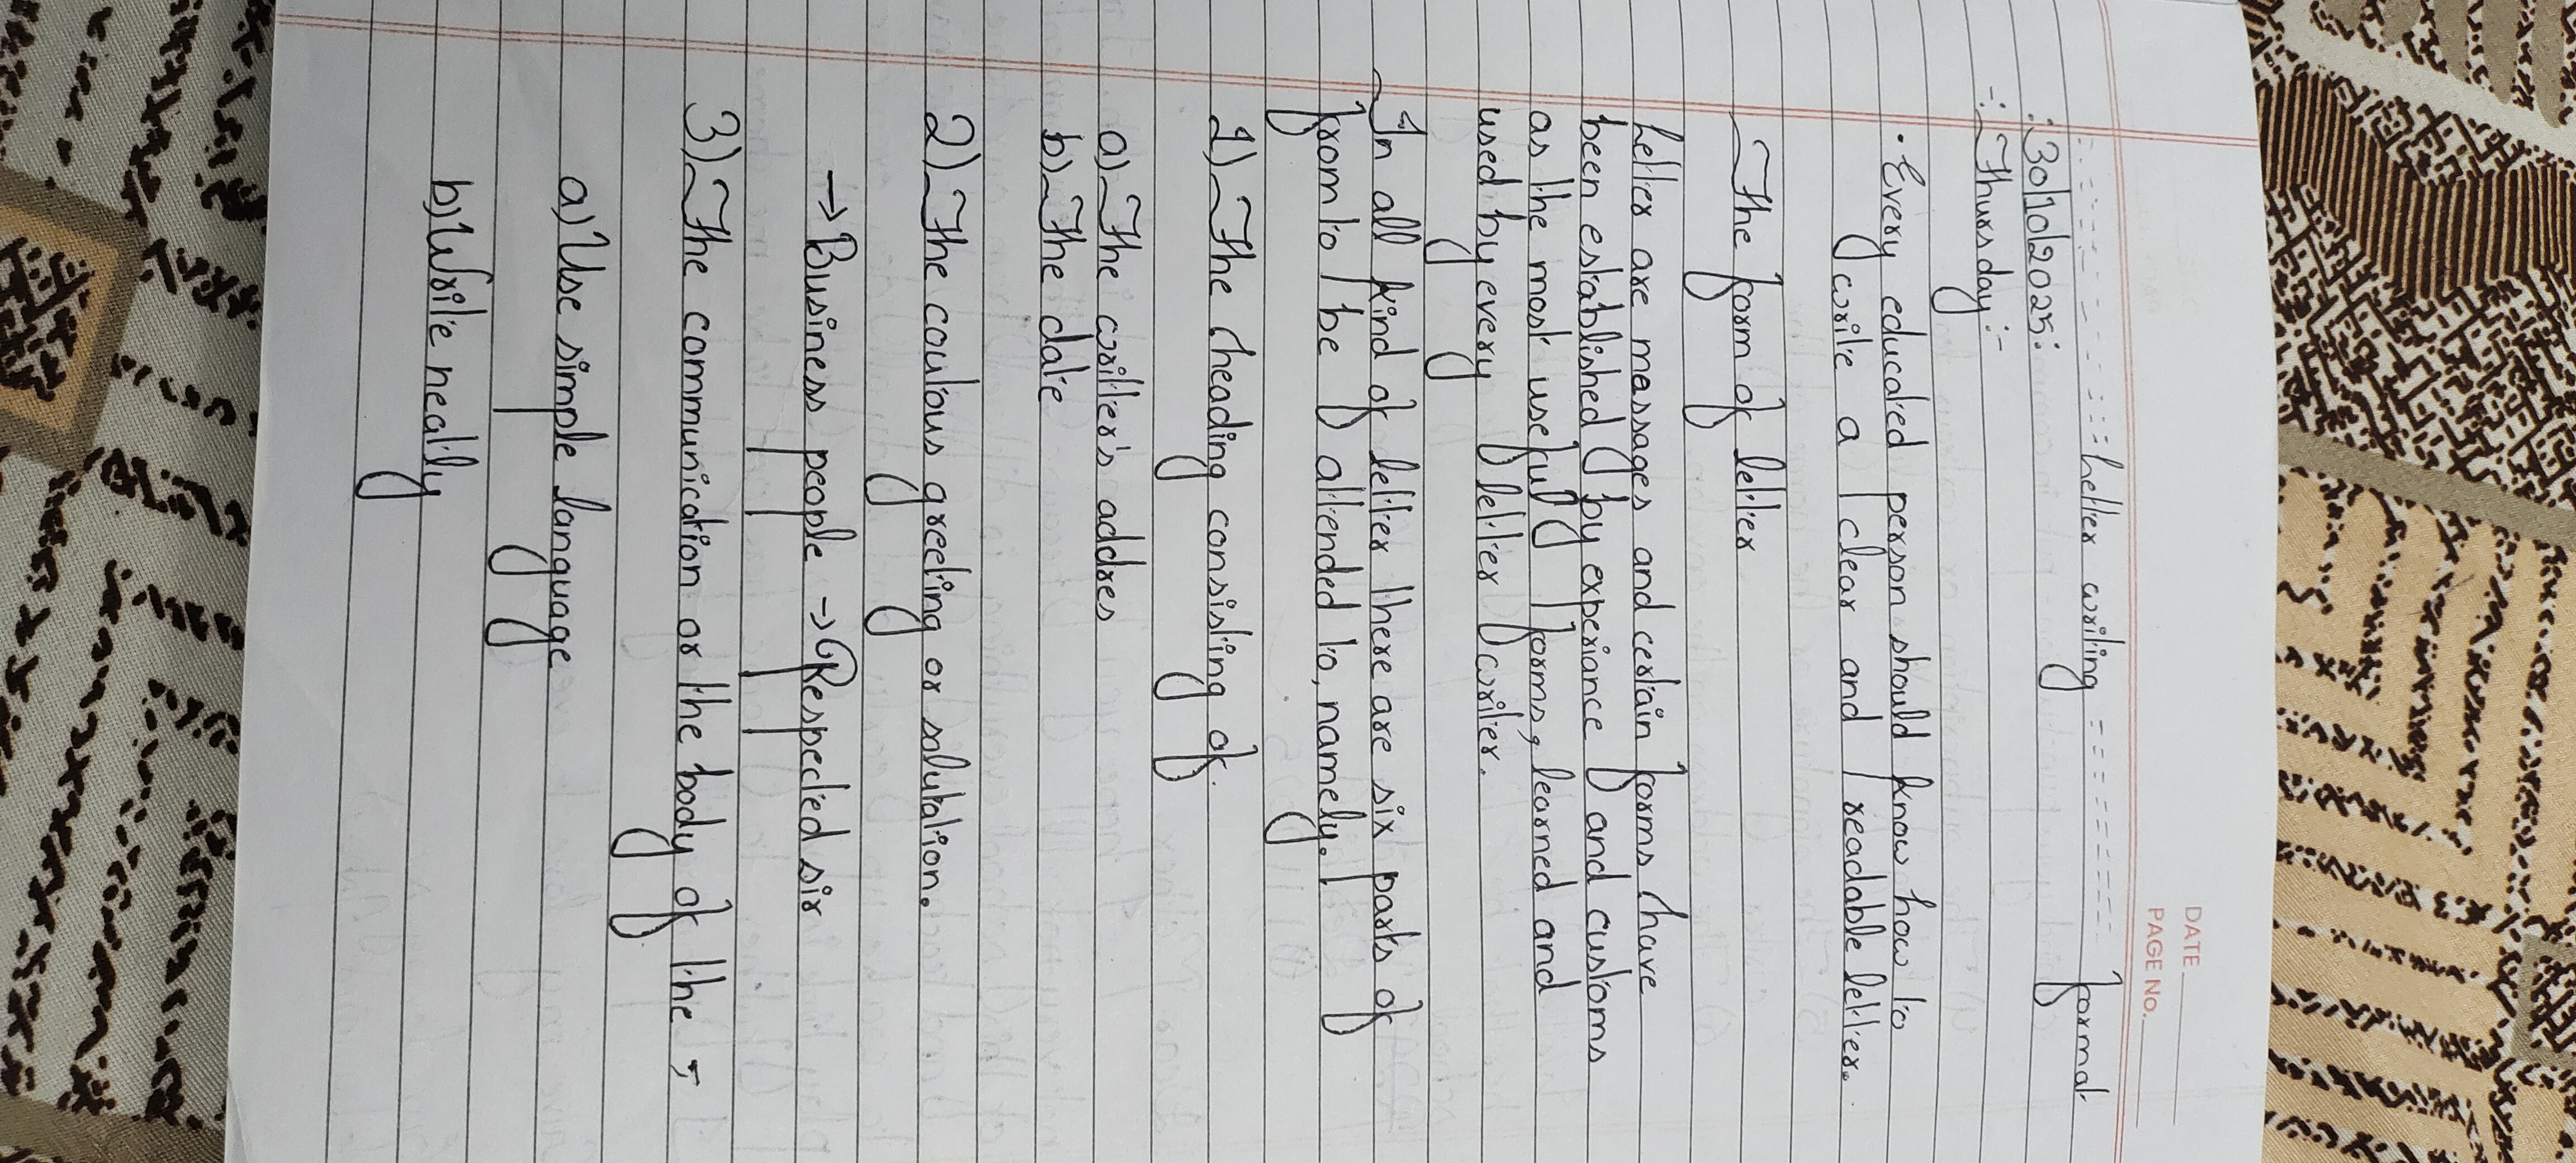 DATE
PAGE NO.
Letter writing formal
:30/10/2025:
-:Thursday:-
• Every educated person should know how to
write a clear and readable letter.
The form of letter
Letter are messages and certain forms have
been established by experiance and customs
as the most useful forms, learned and
used by every letter writer.
In all kind of letter there are six parts of
from to be attended to, namely.
1) The heading consisting of.
a) The writter's addres
b) The date
2) The coutous greeting or solutation.
→ Business people → Respected sir
3) The communication or the body of the
a) Use simple language
b) Write neatly